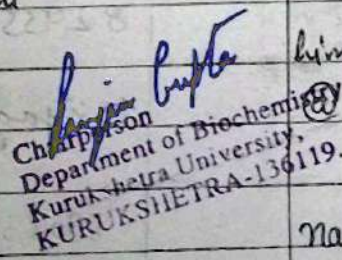 Gupta
Chairperson
Department of Biochemistry
Kurukshetra University,
KURUKSHETRA-136119.